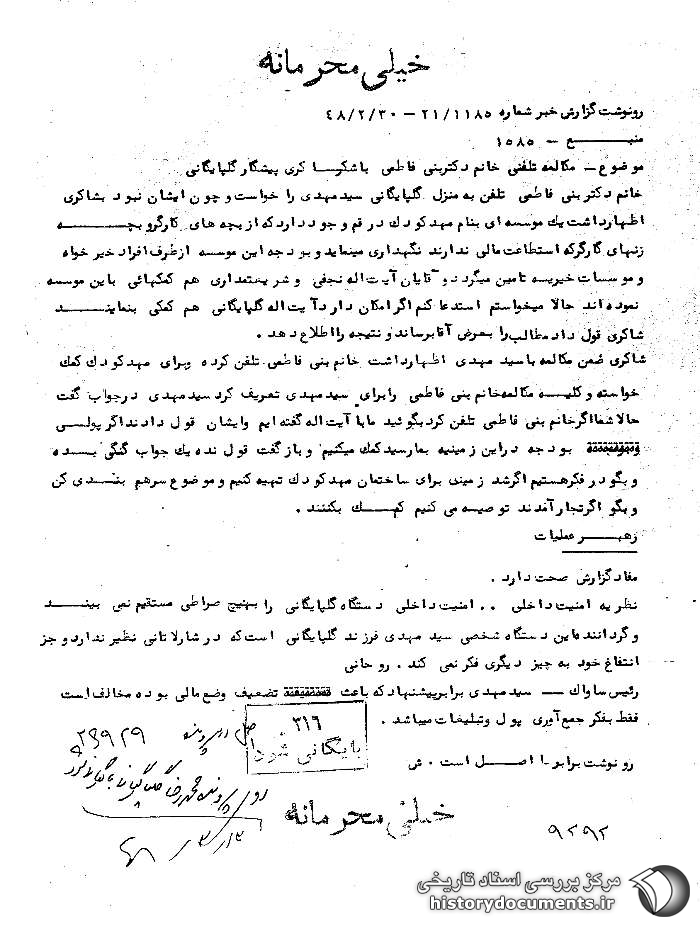 خیلی محرمانه
رونوشت گزارش خبر شماره ۲۱/۱۱۸۵ – ۴۸/۲/۳۰
منبع – ۱۵۸۵
موضوع – مکالمه تلفنی خانم دکتر بنی فاطمی با شکرا کری پیشکار گلپایگانی
خانم دکتر بنی فاطمی تلفن به منزل گلپایگانی سید مهدی را خواست و چون ایشان نبود بشاکری
اظهار داشت یک موسسه ای بنام مهد کودک در قم وجود دارد که از بچه های کارگر و بچه
زنهای کارگر که استطاعت مالی ندارند نگهداری مینماید و بودجه این موسسه از طرف افراد خیر خواه
و موسسات خیریه تامین میگردد و آقایان آیت اله نجفی و شریعتمداری هم کمکهائی باین موسسه
نموده اند حالا میخواستم استدعا کنم اگر امکان دارد آیت اله گلپایگانی هم کمکی بنمایند
شاکری قول داد مطالب را بعرض آقا برساند و نتیجه را اطلاع دهد .
شاکری ضمن مکالمه با سید مهدی اظهار داشت خانم بنی فاطمی تلفن کرده و برای مهد کودک کمک
خواسته و کلیه مکالمه خانم بنی فاطمی را برای سید مهدی تعریف کرد سید مهدی در جواب گفت
حالا شما اگر خانم بنی فاطمی تلفن کرد بگوئید ما با آیت اله گفته ایم و ایشان قول دادند اگر پولی
بودجه در این زمینه بما رسید کمک میکنیم و باز گفت قول نده یک جواب گنگی بده
و بگو در فکر هستیم اگر شد زمینی برای ساختمان مهد کودک تهیه کنیم و موضوع سرهم بندی کن
و بگو اگر تجار آمدند توصیه می کنیم کمک بکنند .
رهبر عملیات
مفاد گزارش صحت دارد .
نظریه امنیت داخلی . . امنیت داخلی دستگاه گلپایگانی را بهیچ صراطی مستقیم نمی بیند
و گرداننده این دستگاه شخصی سید مهدی فرزند گلپایگانی است که در شارلاتانی نظیر ندارد و جز
انتفاع خود به چیز دیگری فکر نمی کند . روحانی
رئیس ساواک – سید مهدی برابر پیشنهاد که باعث تضعیف وضع مالی بوده مخالف است
فقط بفکر جمع آوری پول و تبلیغات میباشد .
۳۱۶
بایگانی شود
اصل در پرونده ۲۹۹۲۹
رونوشت برابر با اصل است . ش
خیلی محرمانه
۹۲۹۲
مرکز بررسی اسناد تاریخی
historydocuments.ir